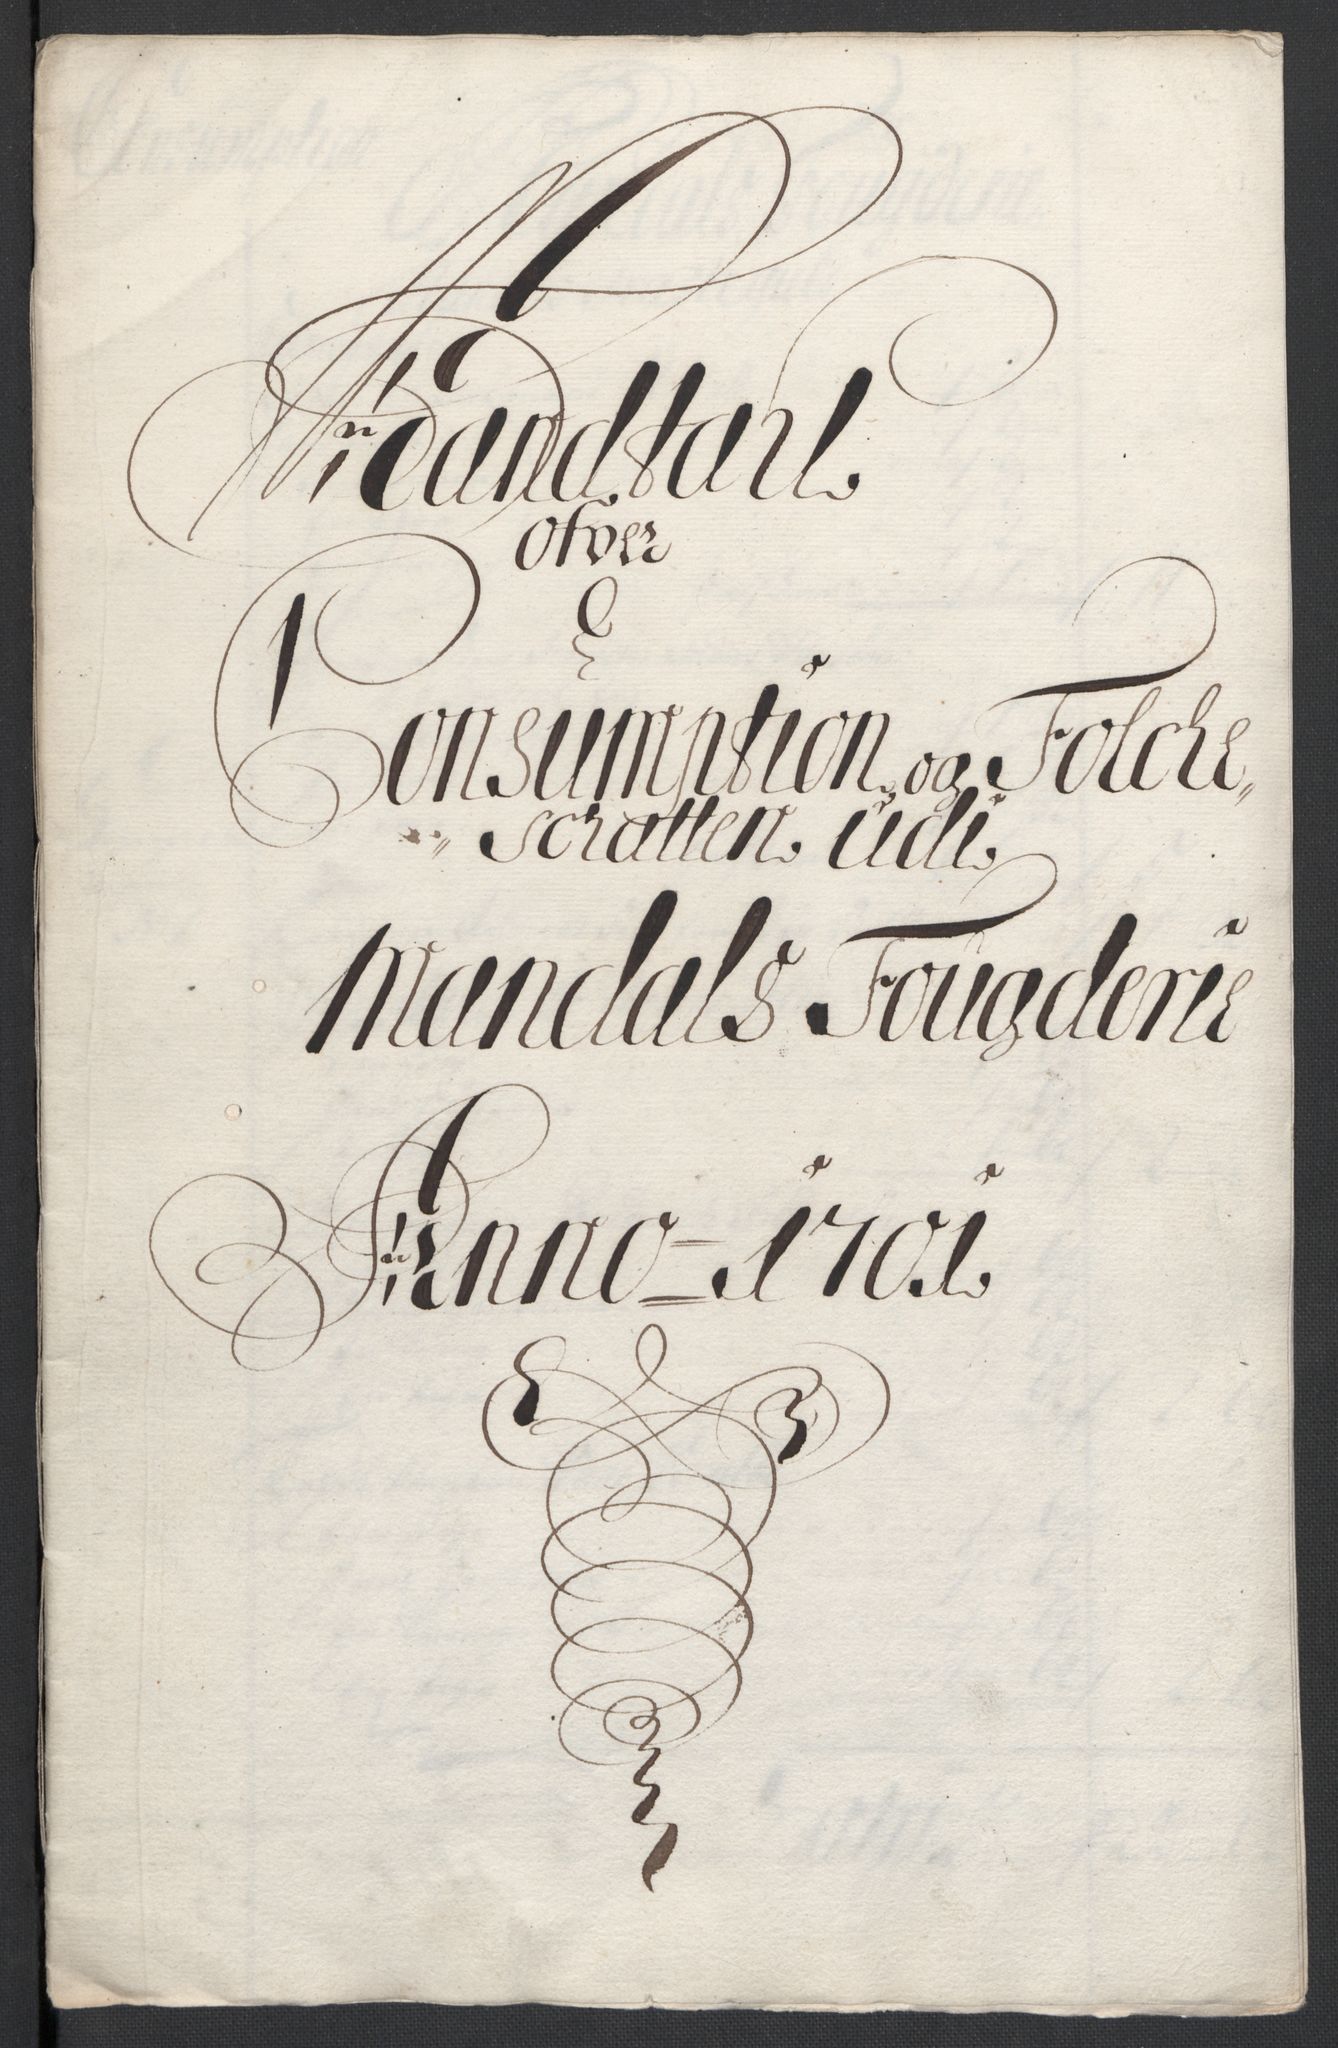 Mandtall
ofver
Consumption og Folche-
-schatten udi
Mandals Fougderie
Anno = 1701